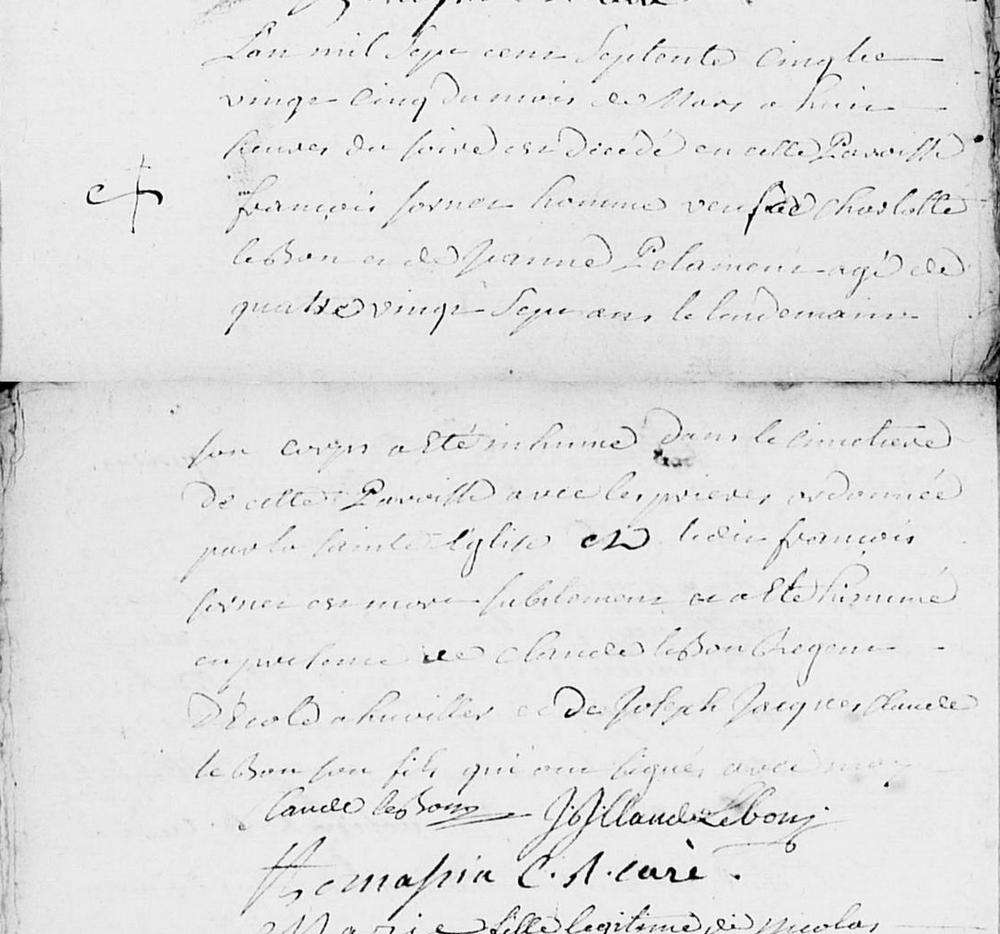 L'an mil Sept cent Septente Cinq le
vingt Cinq du mois de Mars a huit
heures du soire est Décédé en cette Paroisse
françois fornet homme veuf de Charlotte
leBon et de Jeanne Pelament agé de
quattre vingt Sept ans le lendemain
son corps a Eté inhumé Dans le cimetiere
De cette Paroisse avec les prieres ordonnée
par la sainte Eglise et ledit françois
fornet est mort subitement et a Eté hinumé
en presence de Claude leBon Regent
D'Ecole a huviller et De Joseph Jacques Claude
le Bon son fils qui ont signés avec moy
Claude leBon J J Claude Lebon
C. R. curé.
Marie fille legitime de Nicolas